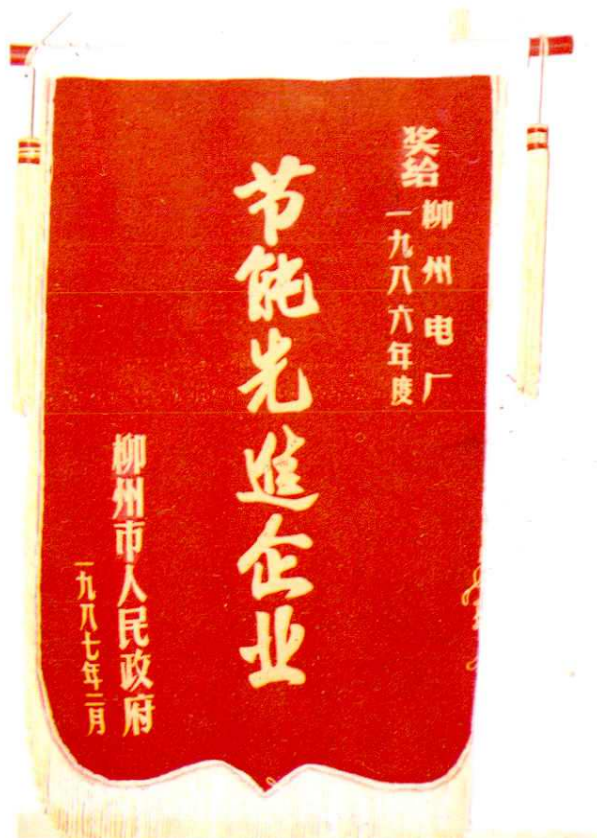 奖给
柳州电厂
一九八六年度
节能先進企业
柳州市人民政府
一九八七年二月